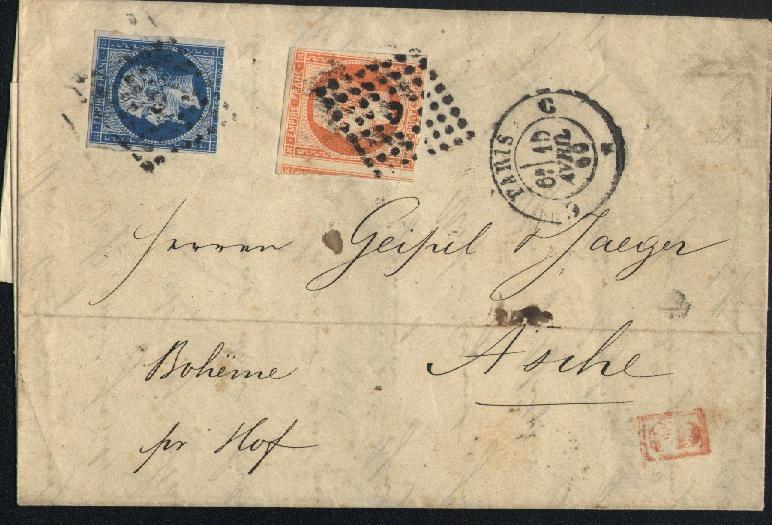 EMPIRE FRANC
EMPIRE FRANC
PARIS
C
6E 15
AVRIL
60
Herren Geipel & Jaeger
Asche
Bohême
pr Hof
P.D.